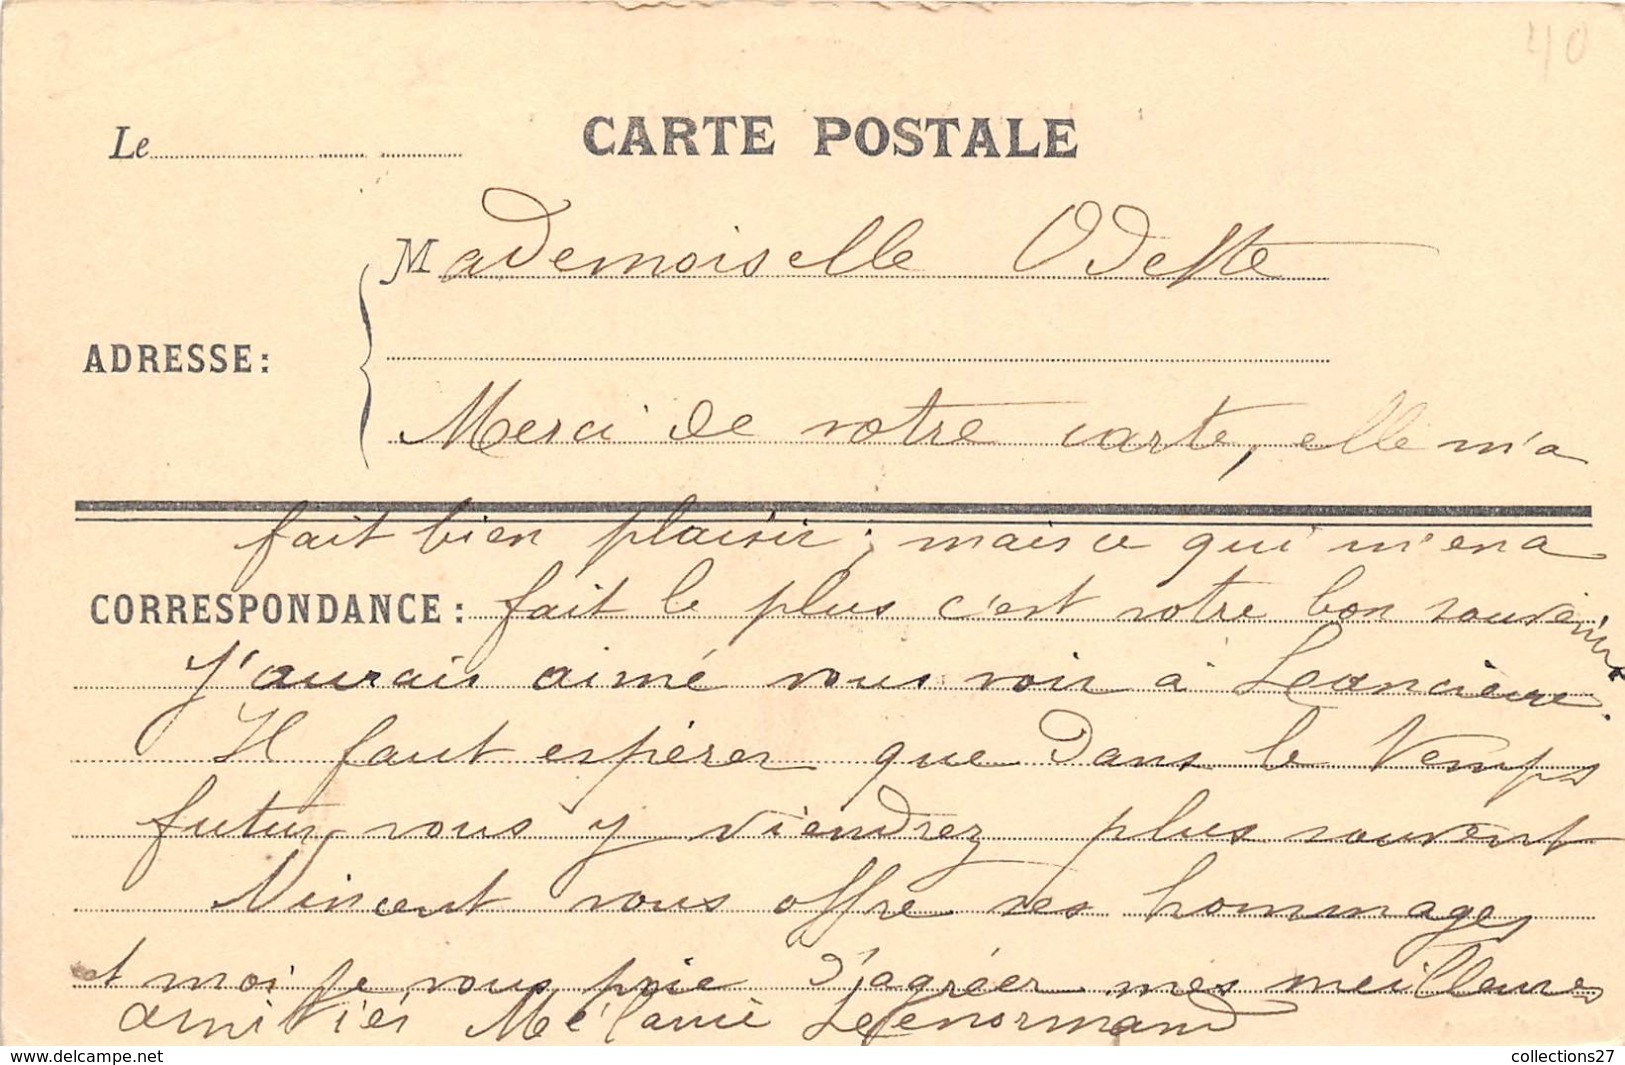 40
CARTE POSTALE
Le
Mademoiselle Odette
ADRESSE:
Merci de votre carte, elle m'a
fait bien plaisir; mais ce qui m'en a
CORRESPONDANCE: fait le plus c'est votre bon souvenir
J'aurais aimé vous voir à
Il faut espérer que dans le temps
futur vous y viendrez plus souvent
Vincent vous offre ses hommages
et moi je vous prie d'agréer mes meilleures
amitiés Mélanie Lefenormand
collections27